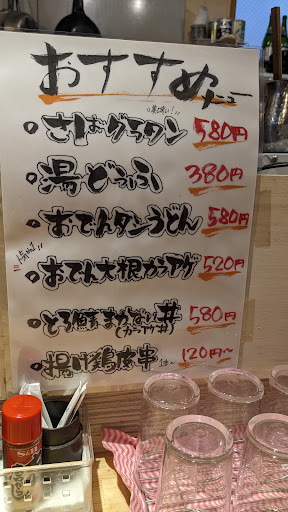 おすすめメニュー
。さばグラタン 580円
。湯どうふ 380円
。おでんタンうどん 580円
。おでん大根カラアゲ 520円
。とろ鯖まかない丼 580円
(カラアゲ丼)
。揚げ鶏皮串 1本〜 120円〜